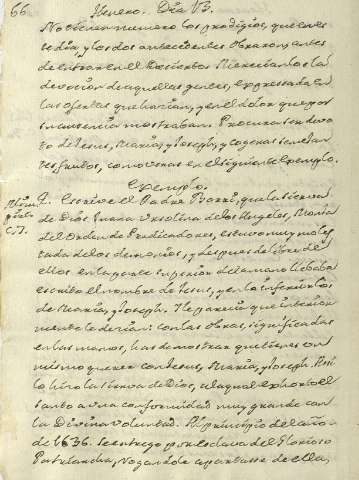 66. Henero. Dia VI.
No tienen numero los prodigios, que en es-
te dia, y los dos antecedentes obraron, antes
de entrar en el Desierto. Merecianlos la
devocion de aquellas gentes, expressada en
las ofertas que hazian, y en el dolor que por
su ausencia mostraban. Procura ser devo-
to de Jesus, Maria, y Joseph, y cogeras semejan-
tes frutos, como veras en el siguiente Exemplo.
Exemplo.
Escrive el Padre Borri, que la sierva
de Dios Juana Ursolina de los Angeles, Monja
del Orden de Predicadores, estuvo muy moles-
tada de los demonios, y despues de libre de
ellos en la parte superior de la mano llebaba
escrito el nombre de Jesus, y en la inferior los
de Maria, y Joseph. Le parecia que interior-
mente la dezian: con las obras, significadas
en las manos, has de mostrar que tienes un
mismo querer con Jesus, Maria, y Joseph. Assi
lo hizo la sierva de Dios, a la qual exhortó el
Santo a una conformidad muy grande con
la Divina voluntad. Al principio del año
de 1636. se entregó por esclava del Glorioso
Patriarcha, rogandole apartasse de ella,